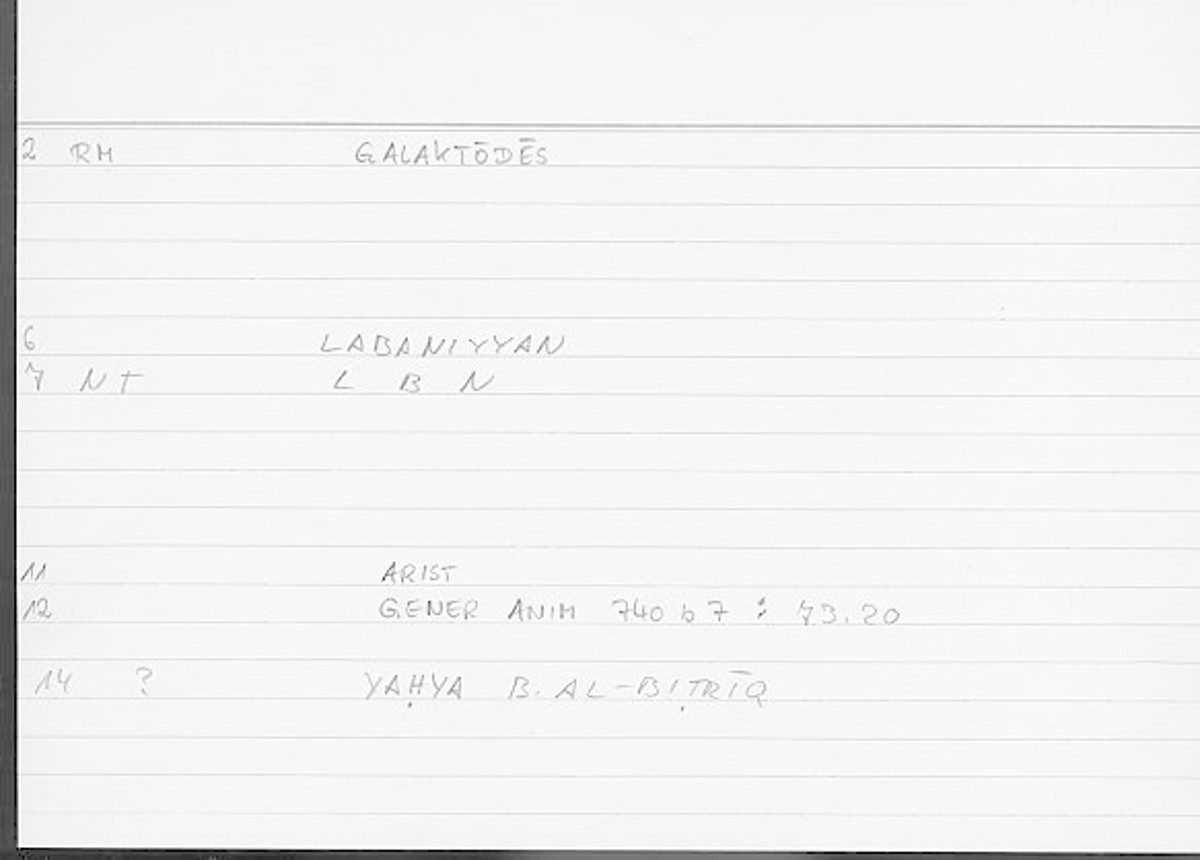 2 RM GALAKTŌDĒS
6 LABANIYYAN
7 NT L B N
11 ARIST
12 GENER ANIM 740 b 7 : 73.20
14 ? YAḤYA B. AL-BIṬRĪQ